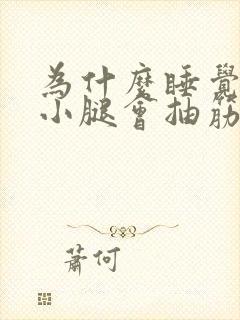 為什麼睡覺
小腿會抽筋
蕭何